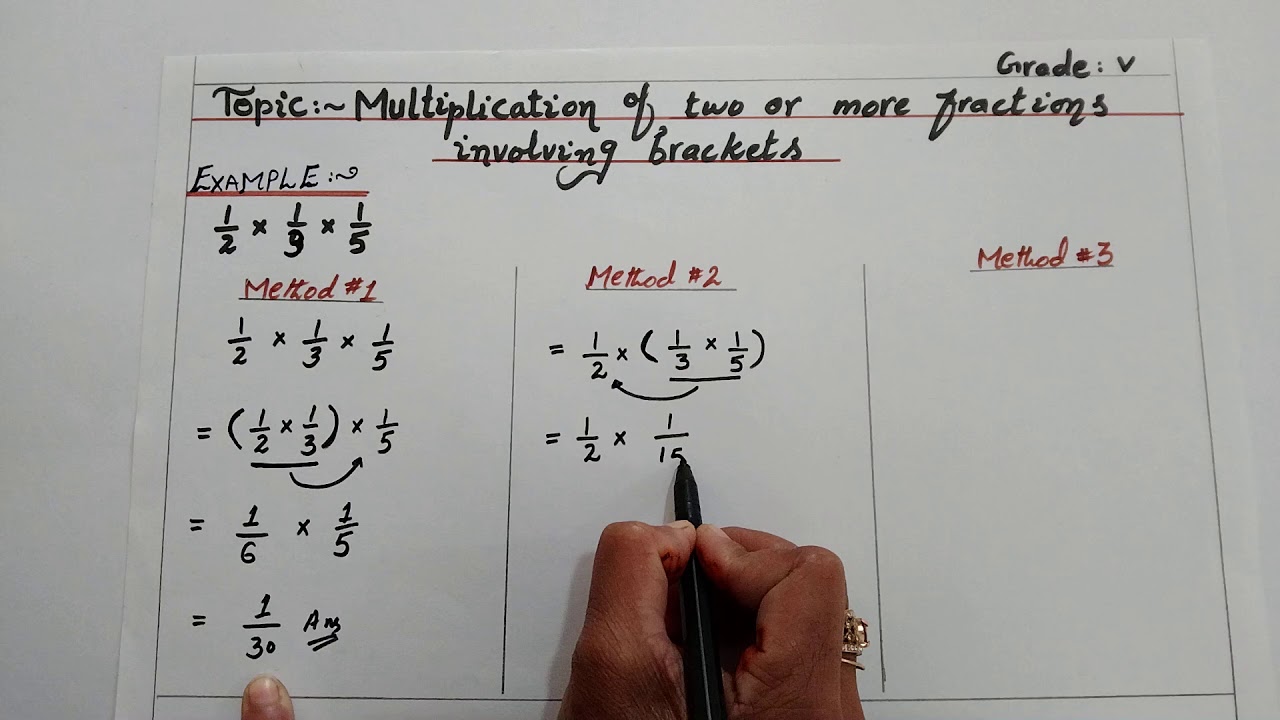 Grade: V
Topic:~ Multiplication of two or more fractions
involving brackets
EXAMPLE:~
1/2 × 1/3 × 1/5
Method #1
1/2 × 1/3 × 1/5
= (1/2 × 1/3) × 1/5
= 1/6 × 1/5
= 1/30 Ans
Method #2
= 1/2 × (1/3 × 1/5)
= 1/2 × 1/15
Method #3